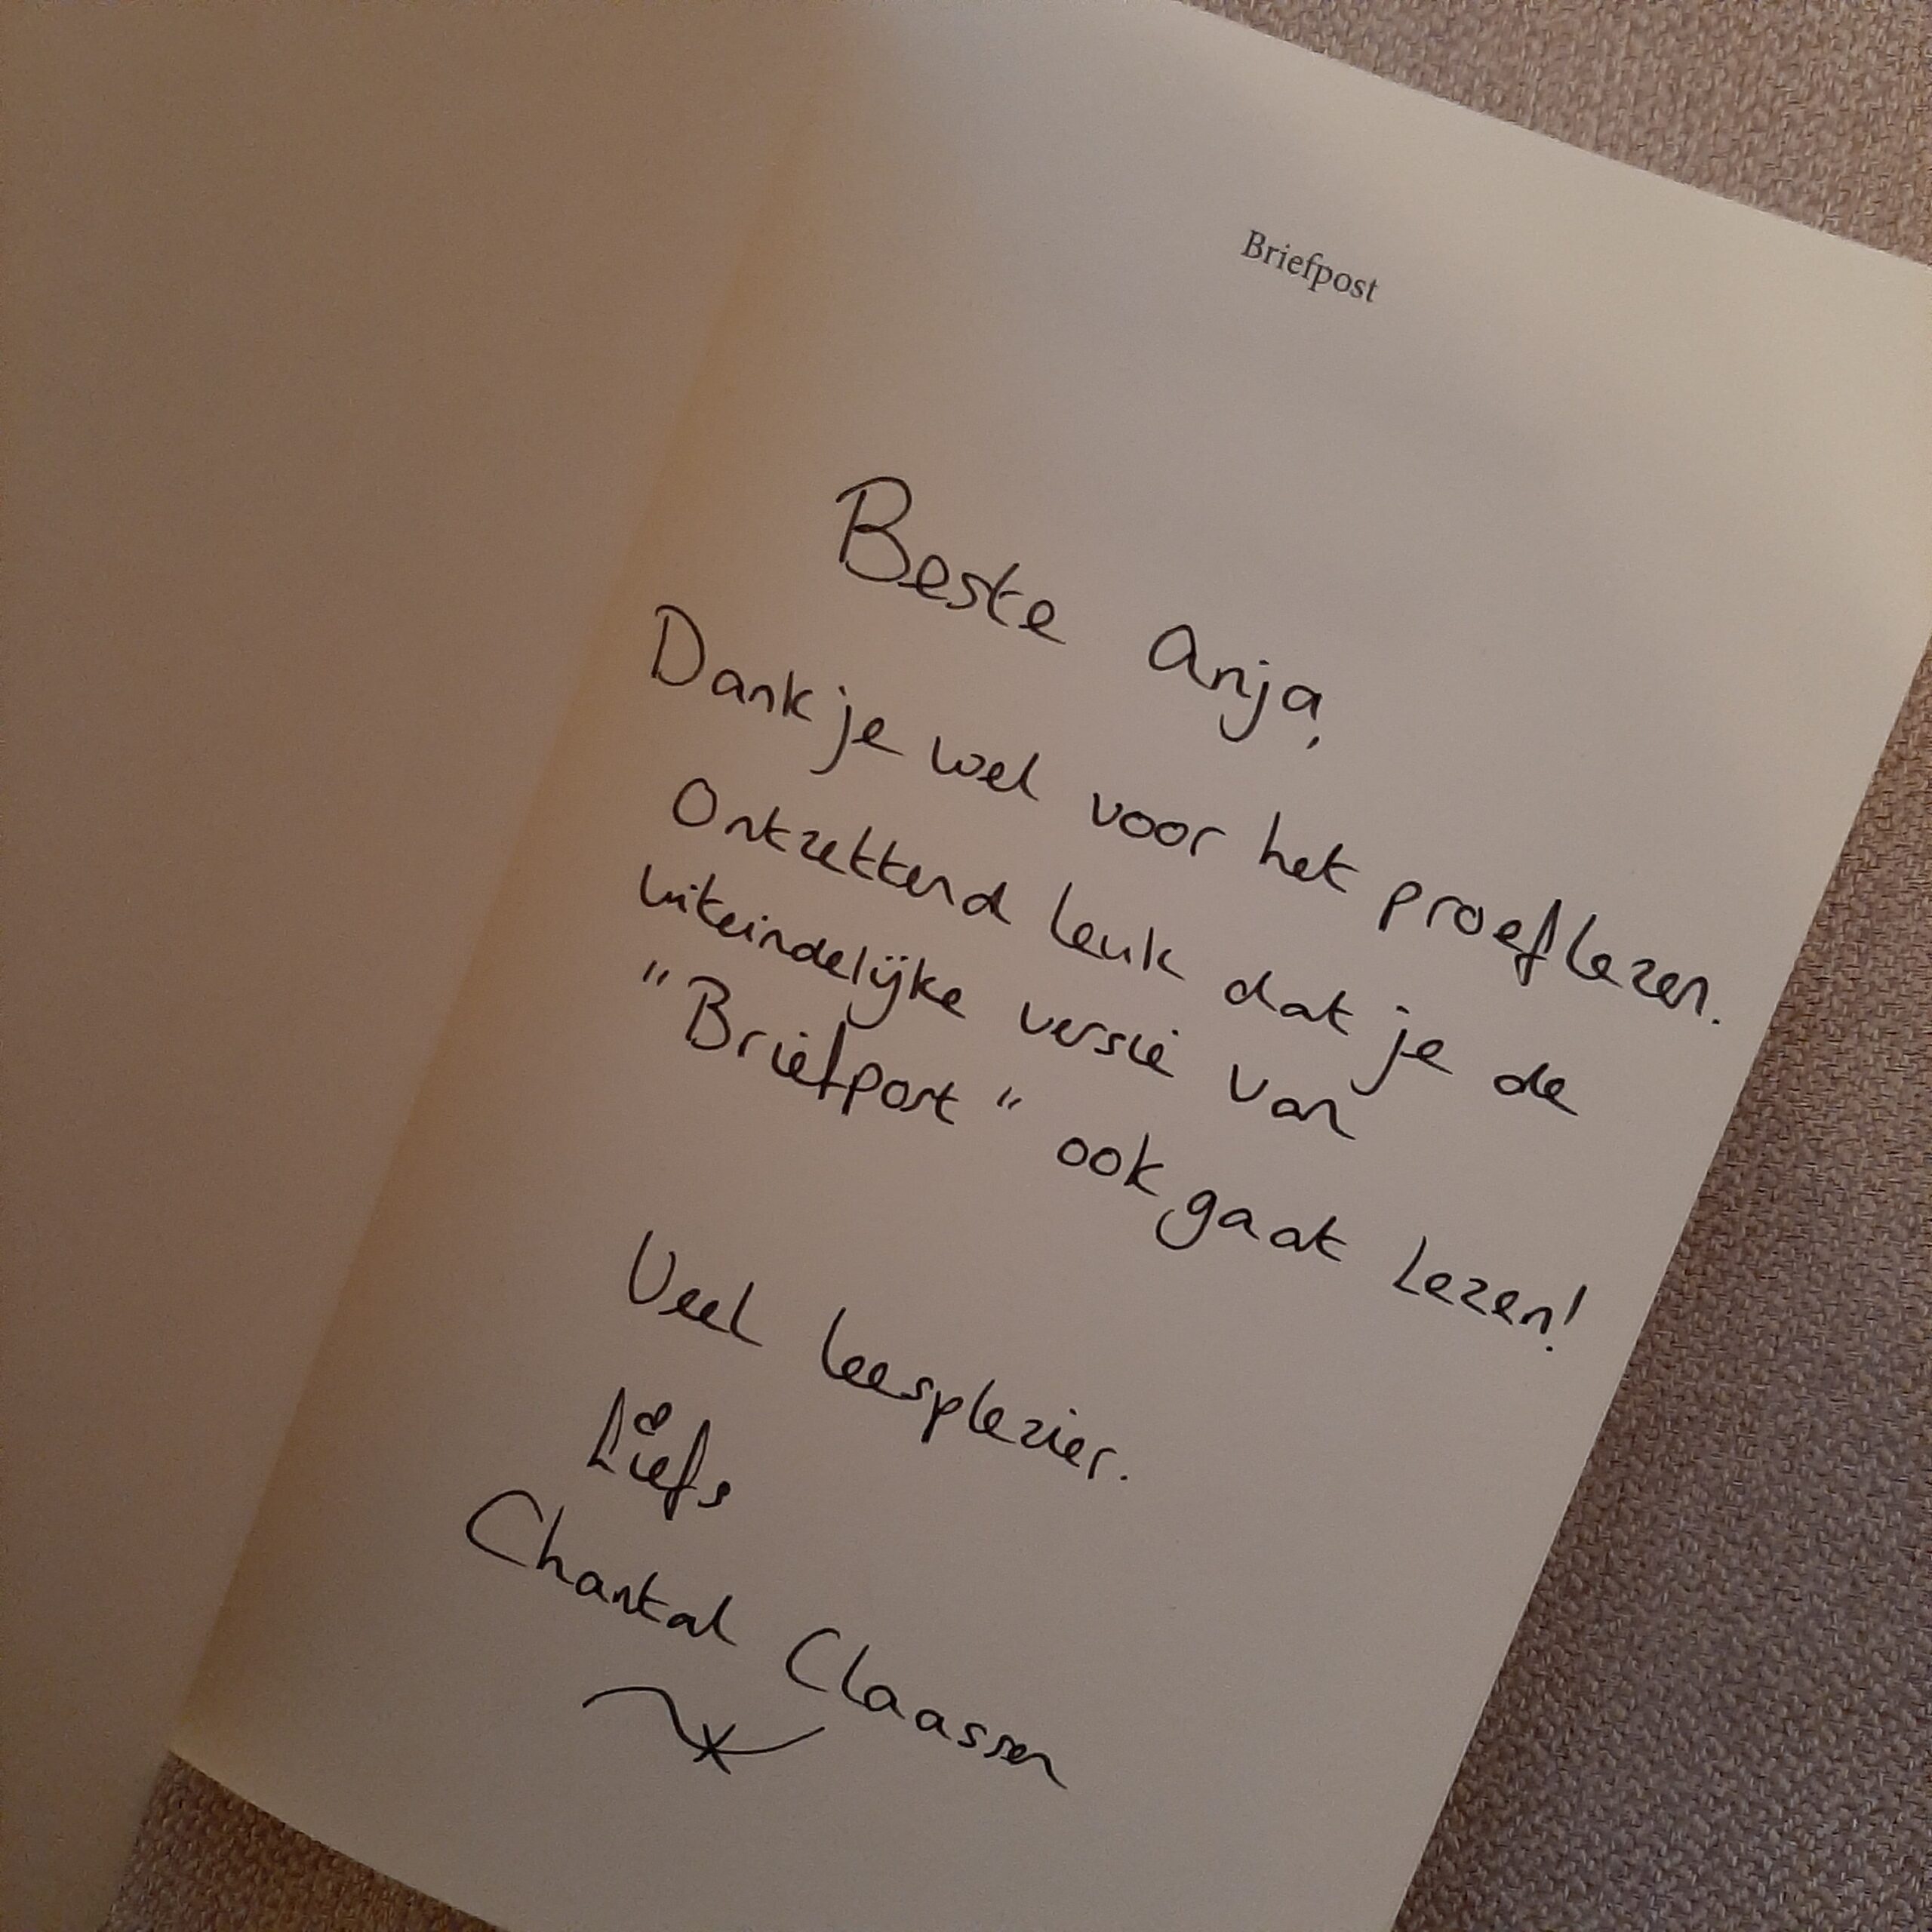 Briefpost
Beste Anja,
Dank je wel voor het proeflezen.
Ontzettend leuk dat je de
uiteindelijke versie van
"Briefpost" ook gaat lezen!
Veel leesplezier.
Liefs
Chantal Claassen